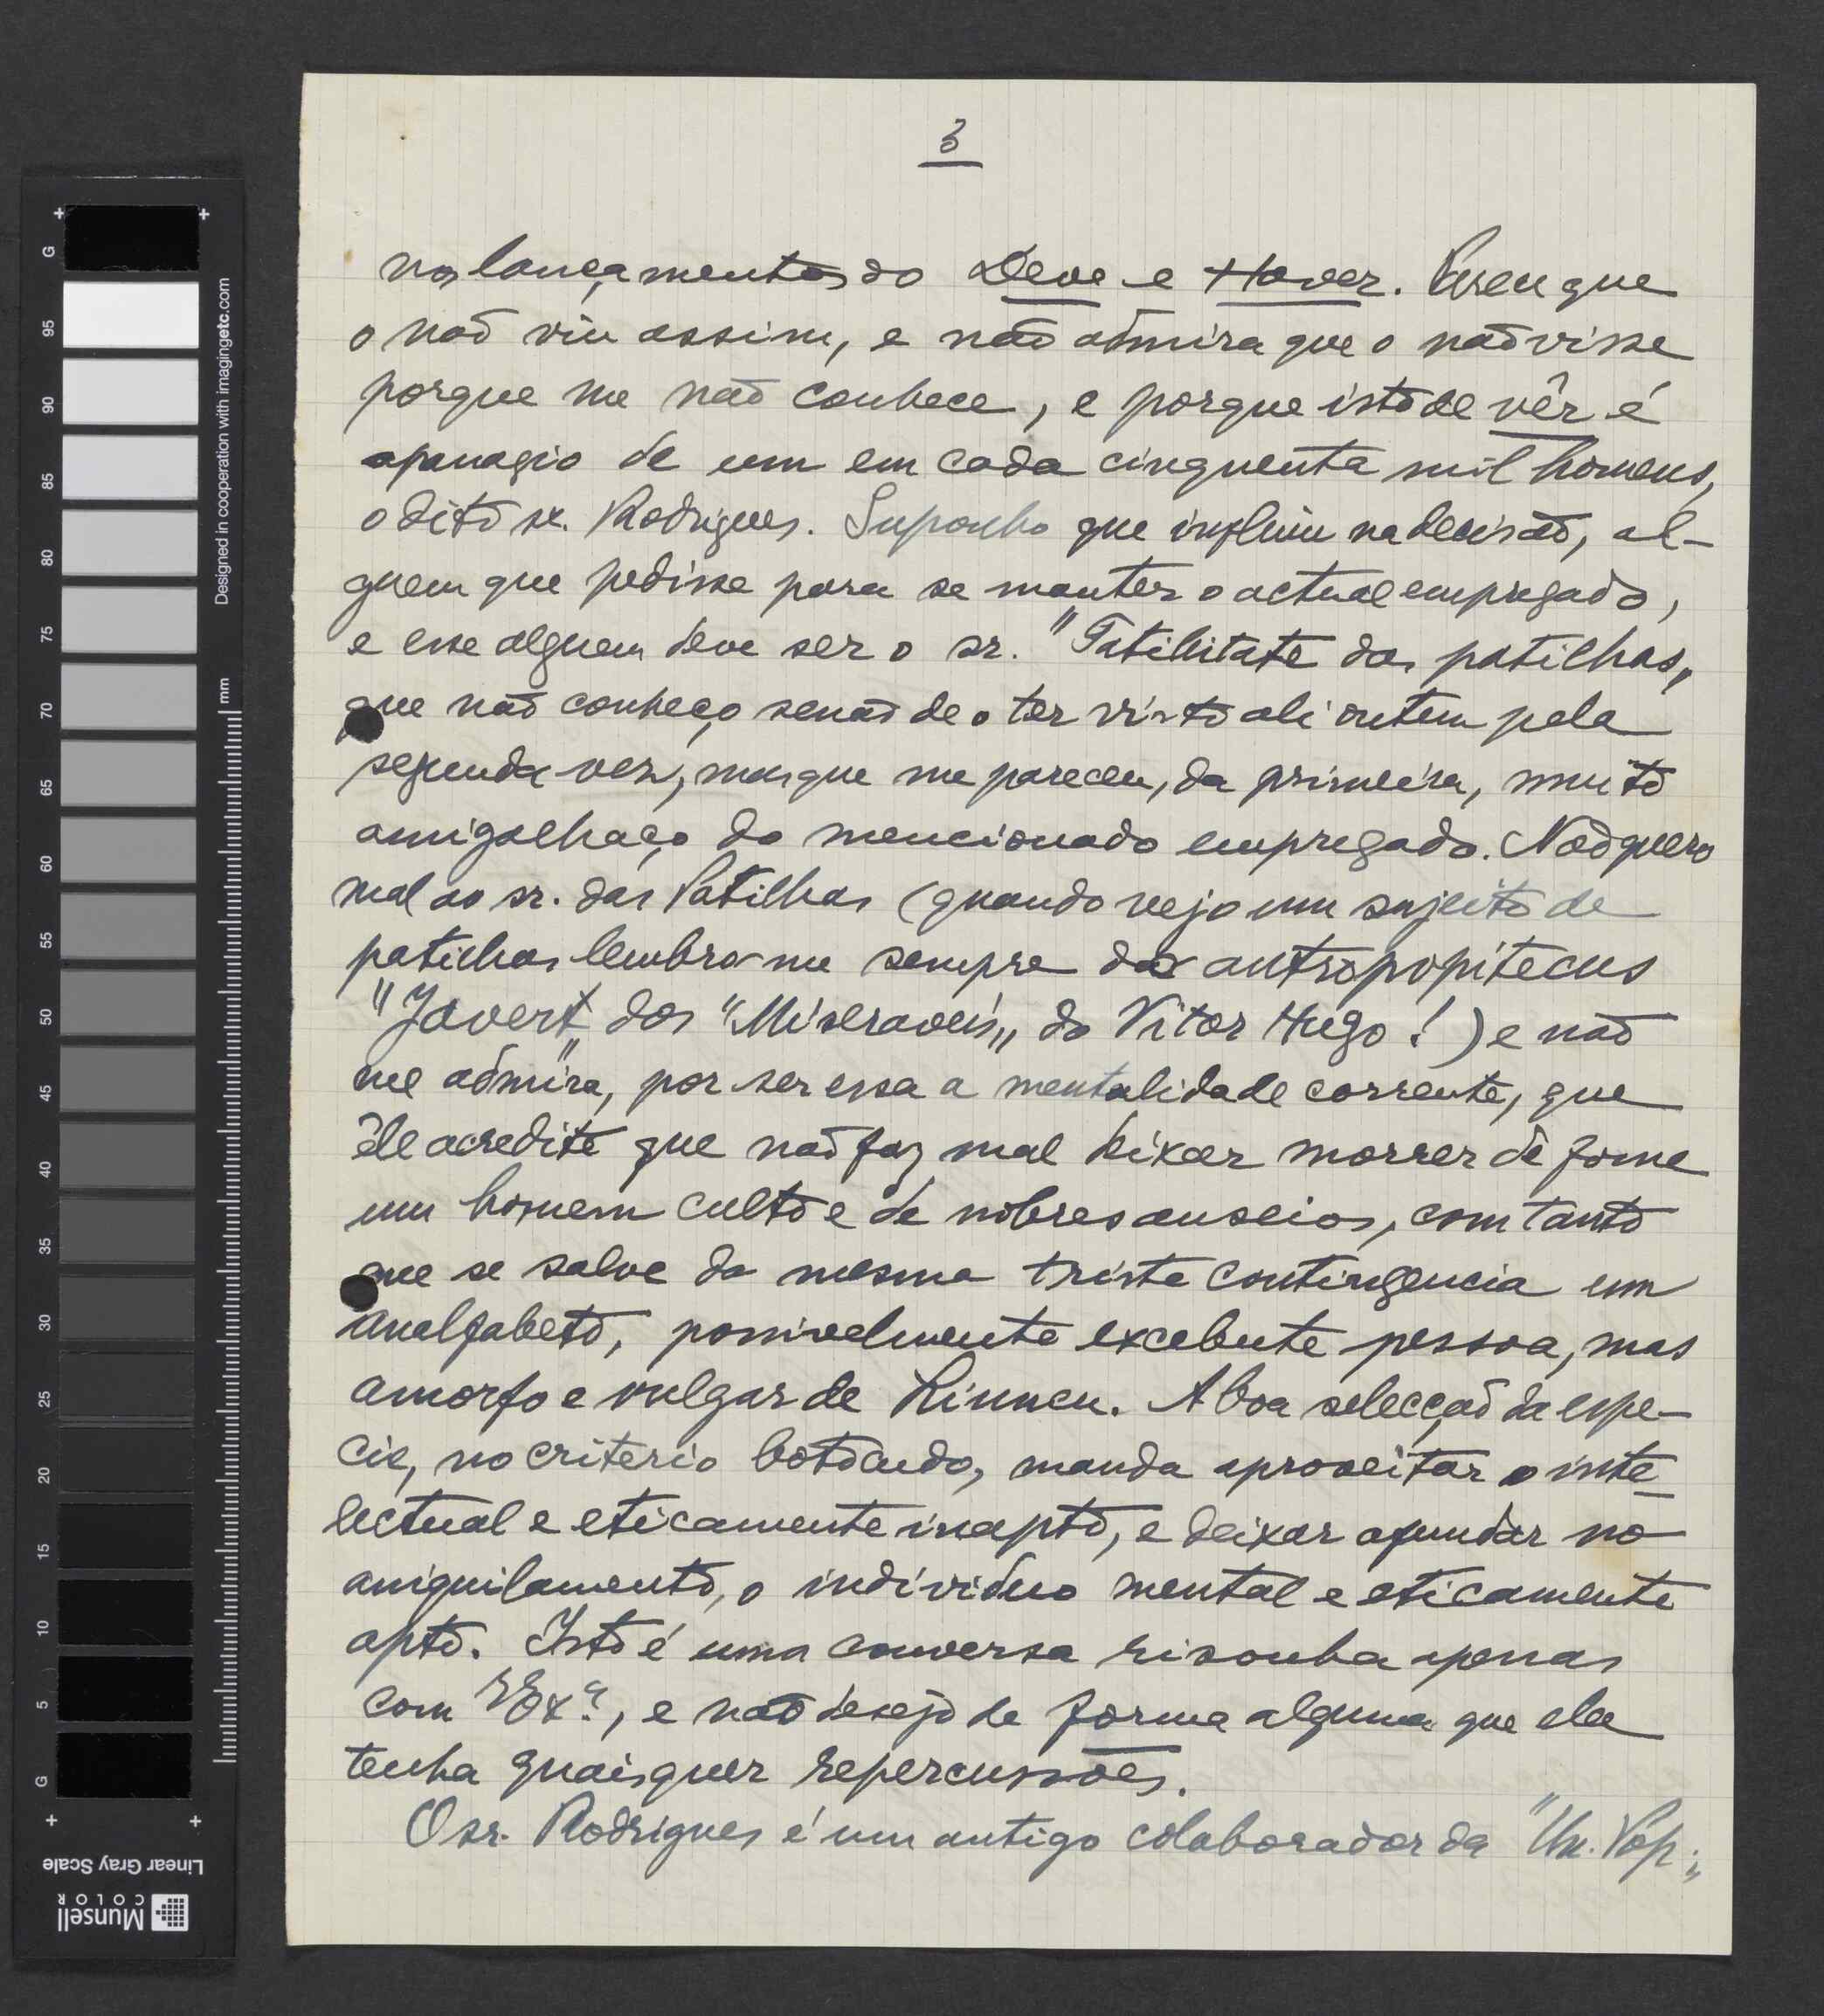 3
nos lançamentos do Deve e Haver. Creu que
o não viu assim, e não admira que o não visse
porque me não conhece, e porque isto de vêr é
apanagio de um em cada cinquenta mil homens,
o dito sr. Rodrigues. Suponho que influiu na decisão, al-
guem que pedisse para se manter o actual empregado,
e esse alguem deve ser o sr. "Tatibitate das patilhas„
que não conheço senão de o ter visto ali ontem pela
segunda vez, mas que me pareceu, da primeira, muito
amigalhaço do mencionado empregado. Não quero
mal ao sr. das Patilhas (quando vejo um sujeito de
patilhas lembro-me sempre do antropopitecus
"Javert„ dos "Miseraveis„ do Vitor Hugo!) e não
me admira, por ser essa a mentalidade corrente, que
êle acredite que não faz mal deixar morrer de fome
um homem culto e de nobres anseios, com tanto
que se salve da mesma triste contingencia um
analfabeto, possivelmente excelente pessoa, mas
amorfo e vulgar de Linneu. A boa selecção da espe-
cie, no criterio botocudo, manda aproveitar o inte-
lectual e eticamente inapto, e deixar afundar no
aniquilamento, o individuo mental e eticamente
apto. Isto é uma conversa risonha apenas
com V Exª., e não desejo de forma alguma que ela
tenha quaisquer repercussões.
O sr. Rodrigues é um antigo colaborador da "Un. Pop.„
Designed in cooperation with imagingetc.com
mm
G
95
90
85
80
75
70
65
60
55
50
45
40
35
30
25
20
15
10
5
G
Linear Gray Scale
Munsell
COLOR